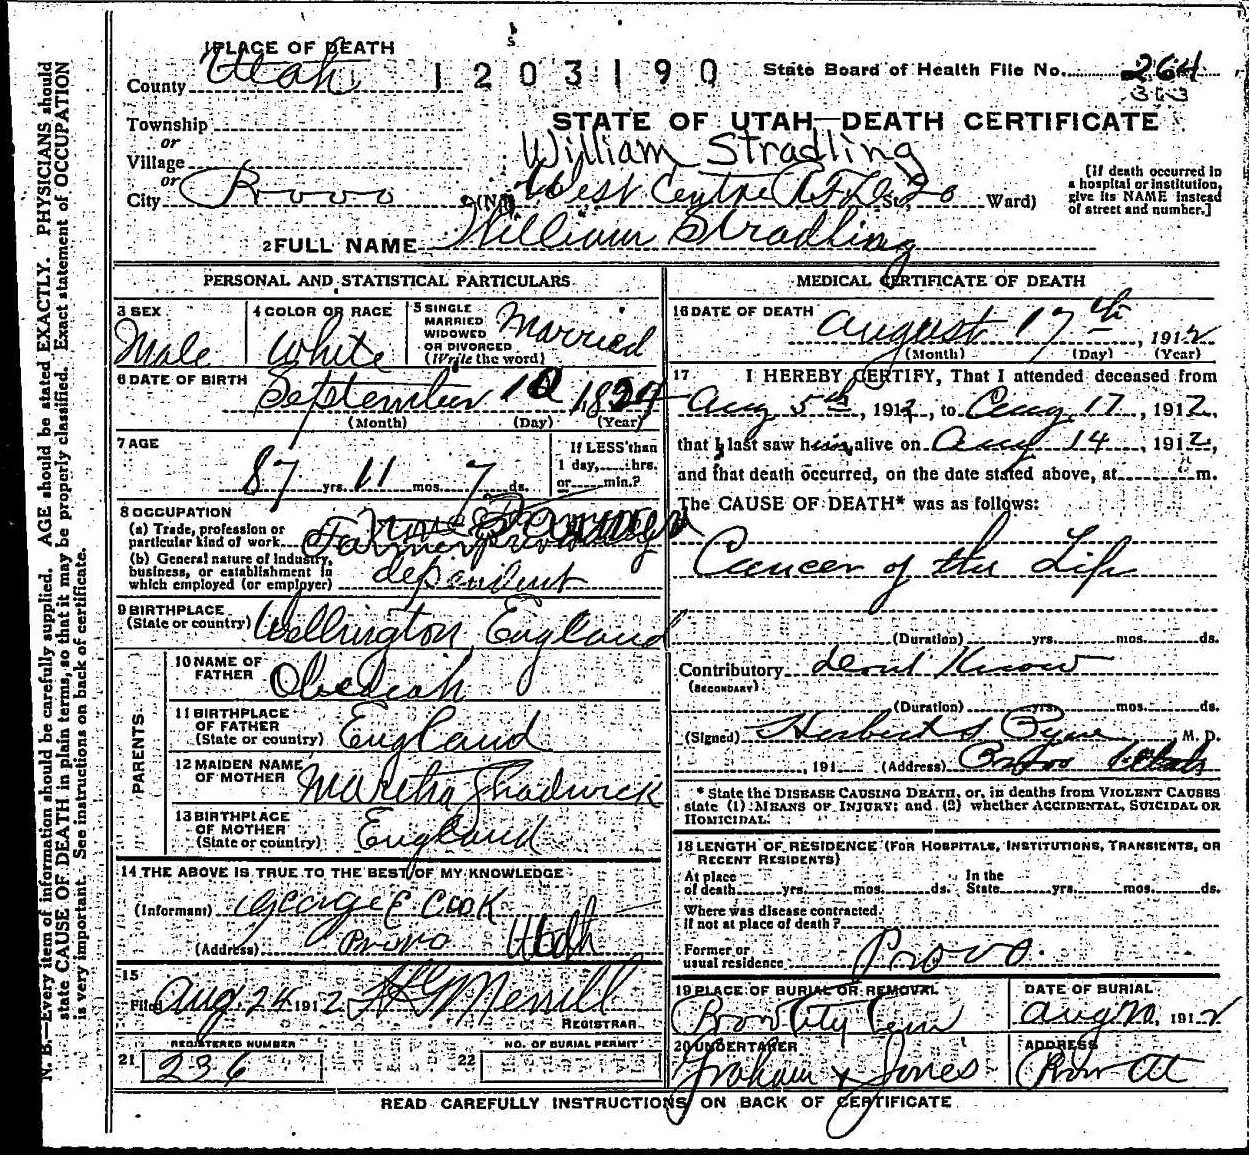 1 PLACE OF DEATH
County Utah
1203190
State Board of Health File No. 264
363
Township
or
Village
or
City Provo
STATE OF UTAH—DEATH CERTIFICATE
William Stradling
(No. West Centre St., Ward)
[If death occurred in
a hospital or institution,
give its NAME instead
of street and number.]
2 FULL NAME William Stradling
PERSONAL AND STATISTICAL PARTICULARS
3 SEX
Male
4 COLOR OR RACE
White
5 SINGLE
MARRIED
WIDOWED
OR DIVORCED
(Write the word)
Married
6 DATE OF BIRTH
September 10 1824
(Month) (Day) (Year)
7 AGE
87 yrs. 11 mos. 7 ds.
If LESS than
1 day, hrs.
or min.?
8 OCCUPATION
(a) Trade, profession or
particular kind of work Farmer
(b) General nature of industry,
business, or establishment in
which employed (or employer) dependent
9 BIRTHPLACE
(State or country) Wellington, England
PARENTS
10 NAME OF
FATHER Obediah
11 BIRTHPLACE
OF FATHER
(State or country) England
12 MAIDEN NAME
OF MOTHER Martha Shadwick
13 BIRTHPLACE
OF MOTHER
(State or country) England
14 THE ABOVE IS TRUE TO THE BEST OF MY KNOWLEDGE
(Informant) George E Cook
(Address) Provo Utah
15
Filed Aug. 24 1912 Merrill
REGISTRAR
REGISTERED NUMBER
21 236
NO. OF BURIAL PERMIT
22
MEDICAL CERTIFICATE OF DEATH
16 DATE OF DEATH
August 17th, 1912
(Month) (Day) (Year)
17 I HEREBY CERTIFY, That I attended deceased from
Aug 5th, 1912, to Aug 17, 1912,
that I last saw him alive on Aug 14, 1912,
and that death occurred, on the date stated above, at m.
The CAUSE OF DEATH* was as follows:
Cancer of the Lip
(Duration) yrs. mos. ds.
Contributory dont Know
(SECONDARY)
(Duration) yrs. mos. ds.
(Signed) Herbert S Pyne M. D.
, 191 (Address) Provo Utah
* State the DISEASE CAUSING DEATH, or, in deaths from VIOLENT CAUSES
state (1) MEANS OF INJURY; and (2) whether ACCIDENTAL, SUICIDAL OR
HOMICIDAL.
18 LENGTH OF RESIDENCE (FOR HOSPITALS, INSTITUTIONS, TRANSIENTS, OR
RECENT RESIDENTS)
At place
of death yrs. mos. ds.
In the
State yrs. mos. ds.
Where was disease contracted,
if not at place of death?
Former or
usual residence Provo.
19 PLACE OF BURIAL OR REMOVAL
Provo City Cem
DATE OF BURIAL
Aug 20, 1912
20 UNDERTAKER
Graham & Jones
ADDRESS
Provo Ut
READ CAREFULLY INSTRUCTIONS ON BACK OF CERTIFICATE
N. B.—Every item of information should be carefully supplied. AGE should be stated EXACTLY. PHYSICIANS should
state CAUSE OF DEATH in plain terms, so that it may be properly classified. Exact statement of OCCUPATION
is very important. See instructions on back of certificate.